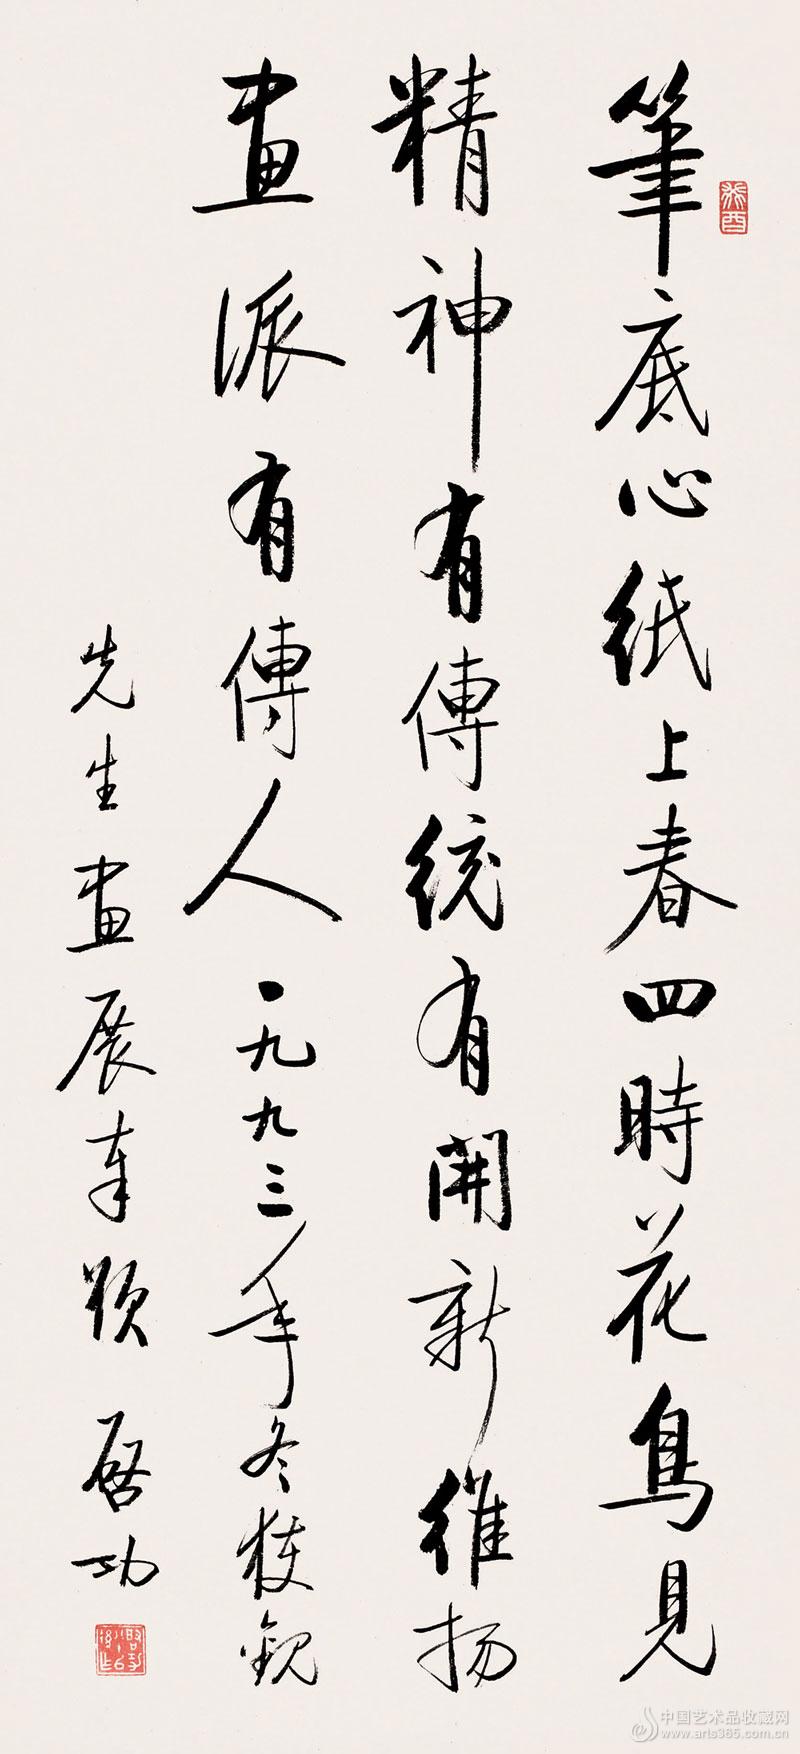 筆底心紙上春四時花鳥見
精神有傳統有開新維扬
畫派有傳人一九九三年冬獲觀
先生畫展奉題 啓功
癸酉
中国艺术品收藏网
www.arts365.com.cn